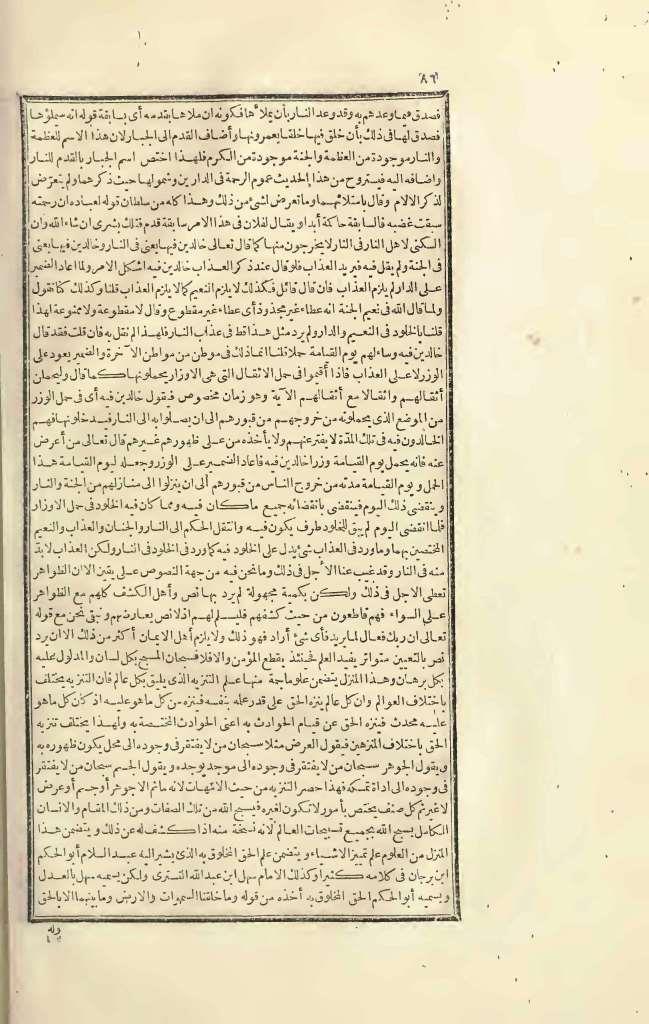 ٨٦
فصدق فيما وعدهم به وقد وعد النار بأن يملأها فكونه ان ملأها بقدمه أى بسابقة قوله انه سيملؤها
فصدق لها فى ذلك بأن خلق فيها خلقا يعمرونها وأضاف القدم الى الجبار لان هذا الاسم للعظمة
والنار موجودة من العظمة والجنة موجودة من الكرم فلهذا اختص اسم الجبار بالقدم للنار
واضافه اليه فيستروح من هذا الحديث عموم الرحمة فى الدارين وشمولها حيث ذكرهما ولم يتعرّض
لذكر الآلام وقال بامتلائهما وما تعرض لشئ من ذلك وهذا كله من سلطان قوله لعباده ان رحمته
سبقت غضبه فالسابقة حاكمة أبدا ويقال لفلان فى هذا الامر سابقة قدم فتلك بشرى ان شاء الله وان
السكنى لاهل النار فى النار لا يخرجون منها كما قال تعالى خالدين فيها يعنى فى النار وخالدين فيها يعنى
فى الجنة ولم يقل فيه فيريد العذاب فلو قال عند ذكر العذاب خالدين فيه اشكل الامر ولما أعاد الضمير
على الدار لم يلزم العذاب فان قال قائل فكذلك لا يلزم النعيم كما لا يلزم العذاب قلنا وكذلك كنا نقول
ولما قال الله فى نعيم الجنة انه عطاء غير مجذوذ أى عطاء غير مقطوع وقال لا مقطوعة ولا ممنوعة لهذا
قلنا بالخلود فى النعيم والدار ولم يرد مثل هذا قط فى عذاب النار فلهذا لم نقل به فان قلت فقد قال
خالدين فيه وساء لهم يوم القيامة حملا قلنا انما ذلك فى موطن من مواطن الآخرة والضمير يعود على
الوزر لا على العذاب فاذا أقيموا فى حمل الاثقال التى هى الاوزار يحملونها كما قال وليحملن
أثقالهم واثقالا مع أثقالهم الآية وهو زمان مخصوص فيقول خالدين فيه أى فى حمل الوزر
من الموضع الذى يحملونه من خروجهم من قبورهم الى ان يصلوا به الى النار فيدخلونها فهم
الخالدون فيه فى تلك المدّة لا يفتر عنهم ولا يأخذه من على ظهورهم غيرهم قال تعالى من أعرض
عنه فانه يحمل يوم القيامة وزرا خالدين فيه فاعاد الضمير على الوزر وجعله ليوم القيامة هذا
الحمل ويوم القيامة مدته من خروج الناس من قبورهم الى ان ينزلوا الى منازلهم من الجنة والنار
وينقضى ذلك اليوم فينقضى بانقضائه جميع ما كان فيه ومما كان فيه الخلود فى حمل الاوزار
فلما انقضى اليوم لم يبق للخلود ظرف يكون فيه وانتقل الحكم الى النار والجنان والعذاب والنعيم
المختصين بهما وما ورد فى العذاب شئ يدل على الخلود فيه كما ورد فى الخلود فى النار ولكن العذاب لا بدّ
منه فى النار وقد غيب عنا الأجل فى ذلك وما نحن فيه من جهة النصوص على يقين الا ان الظواهر
تعطى الاجل فى ذلك ولكن بكمية مجهولة لم يرد بها نص وأهل الكشف كلهم مع الظواهر
على السواء فهم قاطعون من حيث كشفهم فليسلم لهم اذ لا نص يعارضهم ونبقى نحن مع قوله
تعالى ان ربك فعال لما يريد فأى شئ أراد فهو ذلك ولا يلزم أهل الايمان أكثر من ذلك الا ان يرد
نص بالتعيين متواتر يفيد العلم فحينئذ يقطع المؤمن والا فلا فسبحان المسبح بكل لسان والمدلول عليه
بكل برهان وهذا المنزل يتضمن علوما جمة منها علم التنزيه الذى يليق بكل عالم فان التنزيه يختلف
باختلاف العوالم وان كل عالم ينزه الحق على قدر علمه بنفسه فينزهه من كل ما هو عليه اذ كان كل ما هو
عليه محدث فينزه الحق عن قيام الحوادث به اعنى الحوادث المختصة به ولهذا يختلف تنزيه
الحق باختلاف المنزهين فيقول العرض مثلا سبحان من لا يفتقر فى وجوده الى محل يكون ظهوره به
ويقول الجوهر سبحان من لا يفتقر فى وجوده الى موجد يوجده ويقول الجسم سبحان من لا يفتقر
فى وجوده الى اداة تمسكه فهذا حصر التنزيه من حيث الامهات لانه ما ثم الا جوهر أو جسم أو عرض
لا غير ثم كل صنف يختص بأمور لا تكون لغيره فيسبح الله من تلك الصفات ومن ذلك المقام والانسان
الكامل يسبح الله بجميع تسبيحات العالم لانه نسخة منه اذا كشف له عن ذلك ويتضمن هذا
المنزل من العلوم علم تمييز الاشياء ويتضمن علم الحق المخلوق به الذى يشير اليه عبد السلام أبو الحكم
ابن برجان فى كلامه كثيرا وكذلك الامام سهل ابن عبد الله التسترى ولكن يسميه سهل بالعدل
ويسميه أبو الحكم الحق المخلوق به أخذه من قوله وما خلقنا السموات والارض وما بينهما الا بالحق
وله